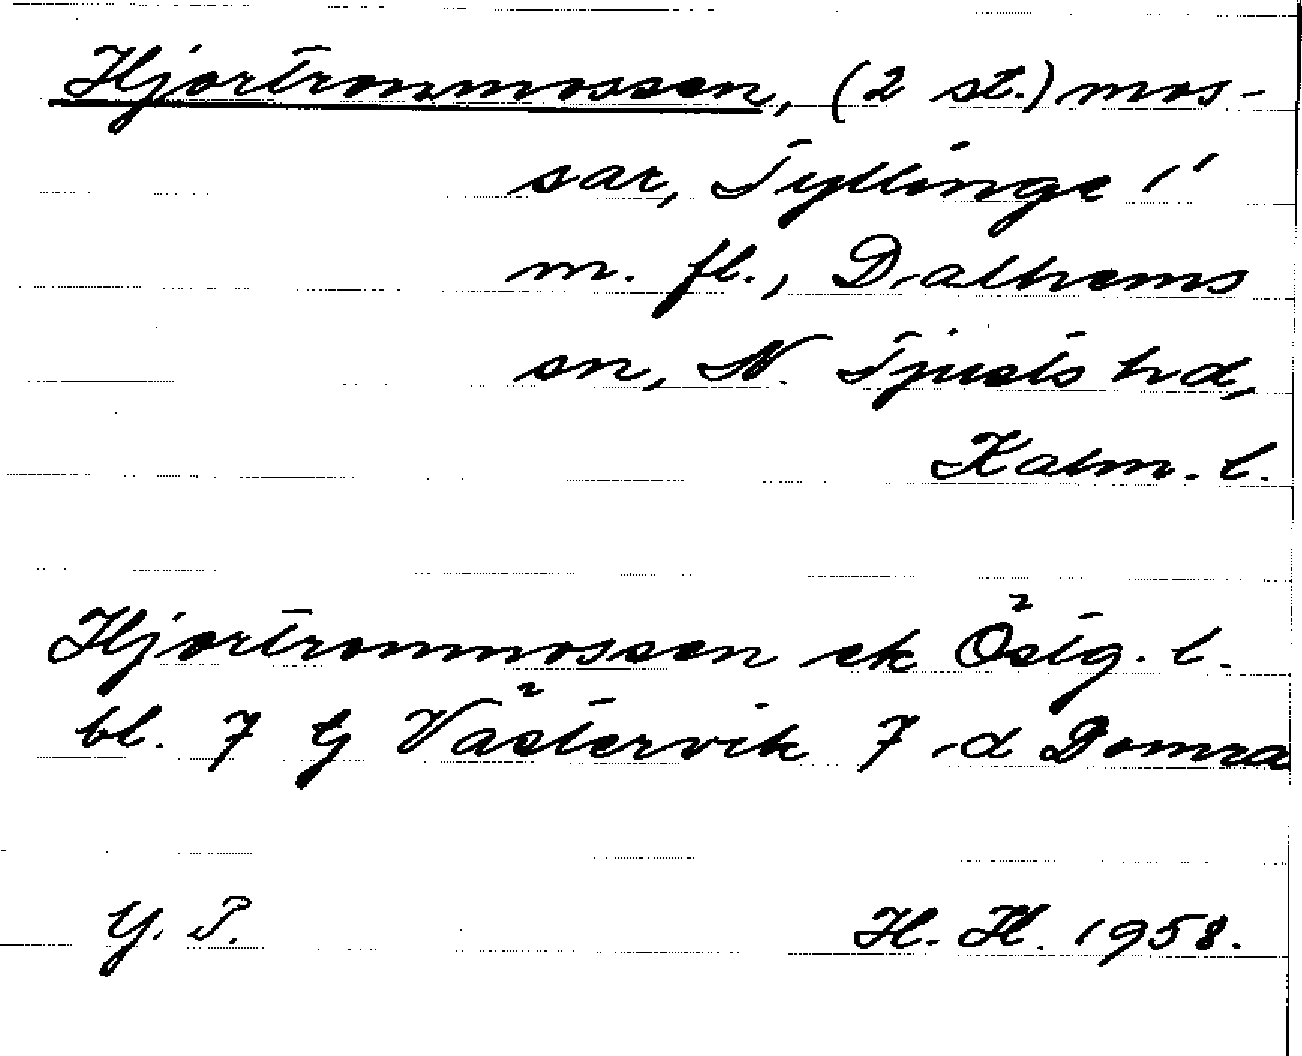 Hjortronmossen, (2 st.) mos-
sar, Tyllinge 1'
m. fl., Dalhems
sn, N. Tjusts hd,
Kalm. l.
Hjortronmossen ek Östg. l.
bl. 7 G Västervik 7 d Domra
Y. P.
H. H. 1958.